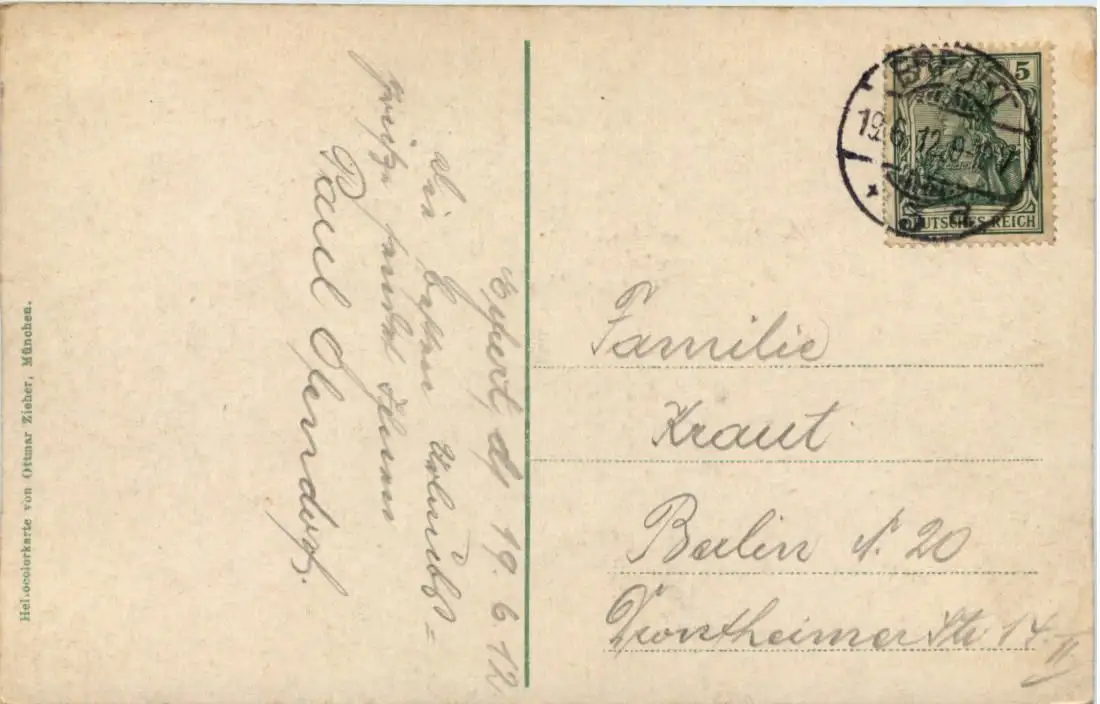 Erfurt, d. 19. 6. 12
Die besten Urlaubs=
grüße sendet Ihnen
Paul Ohrndorf.
Heliocolorkarte von Ottmar Zieher, München.
ERFURT
19.6.12.
5
DEUTSCHES REICH
Familie
Kraut
Berlin N. 20
Drontheimer Str 14 II